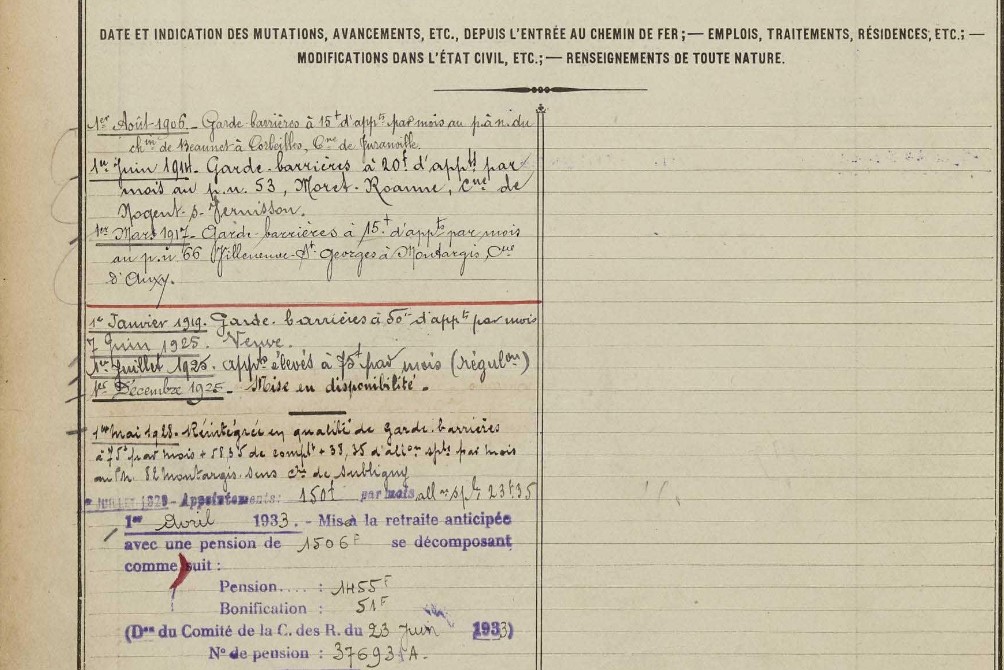 DATE ET INDICATION DES MUTATIONS, AVANCEMENTS, ETC., DEPUIS L'ENTRÉE AU CHEMIN DE FER ; — EMPLOIS, TRAITEMENTS, RÉSIDENCES, ETC. ; —
MODIFICATIONS DANS L'ÉTAT CIVIL, ETC. ; — RENSEIGNEMENTS DE TOUTE NATURE.
1er Août 1906. - Garde-barrières à 15f d'appts par mois au p. à n. du
chin de Beaune à Corbeilles, Cne de Juranville.
1er Juin 1914. Garde-barrières à 20f d'appts par
mois au p.n. 53, Moret-Roanne, Cne de
Nogent-s-Vernisson.
1er Mars 1917 - Garde-barrières à 15f d'appts par mois
au p.n 66 Villeneuve-St Georges à Montargis Cne
d'Auxy.
1er Janvier 1919. Garde-barrières à 50f d'appts par mois
7 Juin 1925. Veuve.
1er Juillet 1925. appts élevés à 75f par mois (régulon)
1er Décembre 1925 - Mise en disponibilité -
1er mai 1928 - Réintégrée en qualité de garde-barrières
à 75f par mois + 58,35 de complt + 38,35 d'allon sple par mois
au Pn. 82 Montargis-Sens Cne de Subligny
JUILLET 1929 - Appointements : 150f par mois all on sple 23f35
1er Avril 1933. - Mise à la retraite anticipée
avec une pension de 1506F se décomposant
comme suit :
Pension.... : 1455F
Bonification : 51F
(Don du Comité de la C. des R. du 23 Juin 1933)
N° de pension : 37693 A.